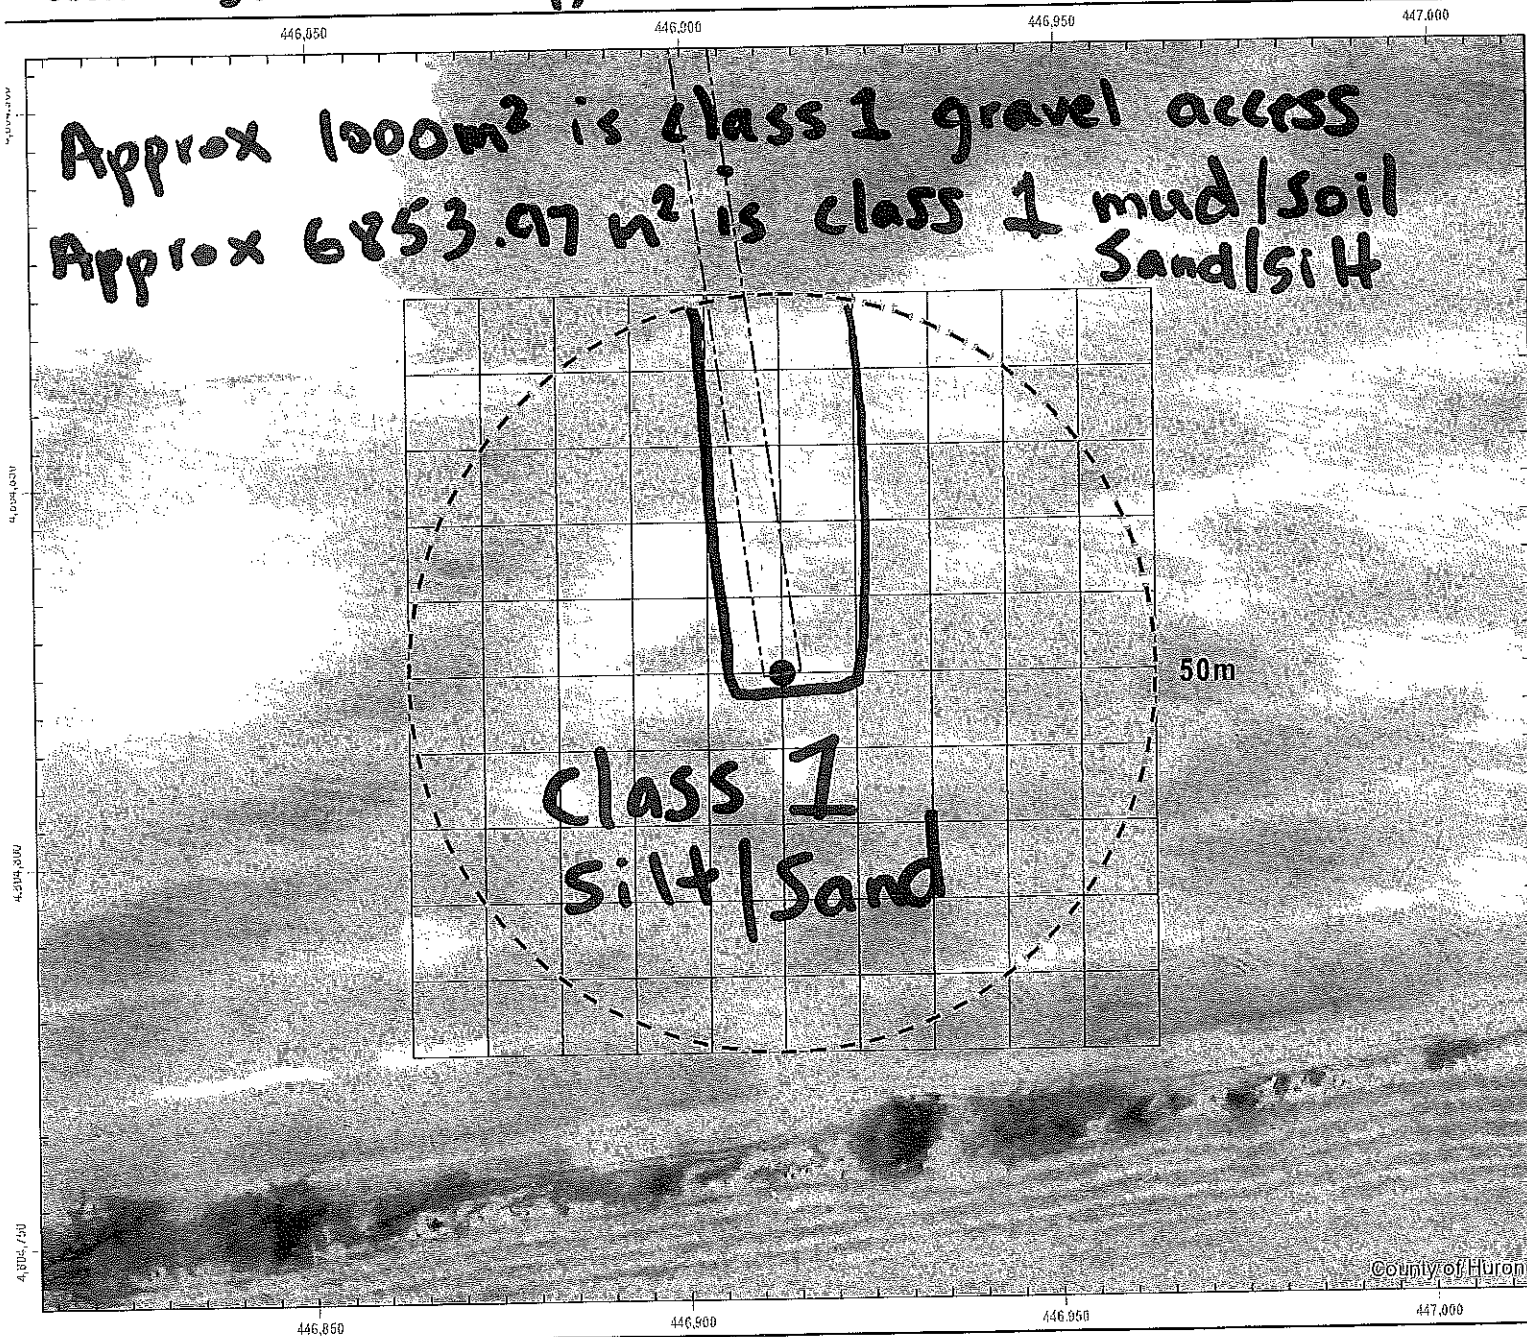 446,850 446,900 446,950 447,000
Approx 1000m² is class 1 gravel access
Approx 6853.97 m² is class 1 mud/soil
Sand/silt
4,804,850
50m
class 1
silt/sand
4,804,800
4,804,750
County of Huron
446,850 446,900 446,950 447,000